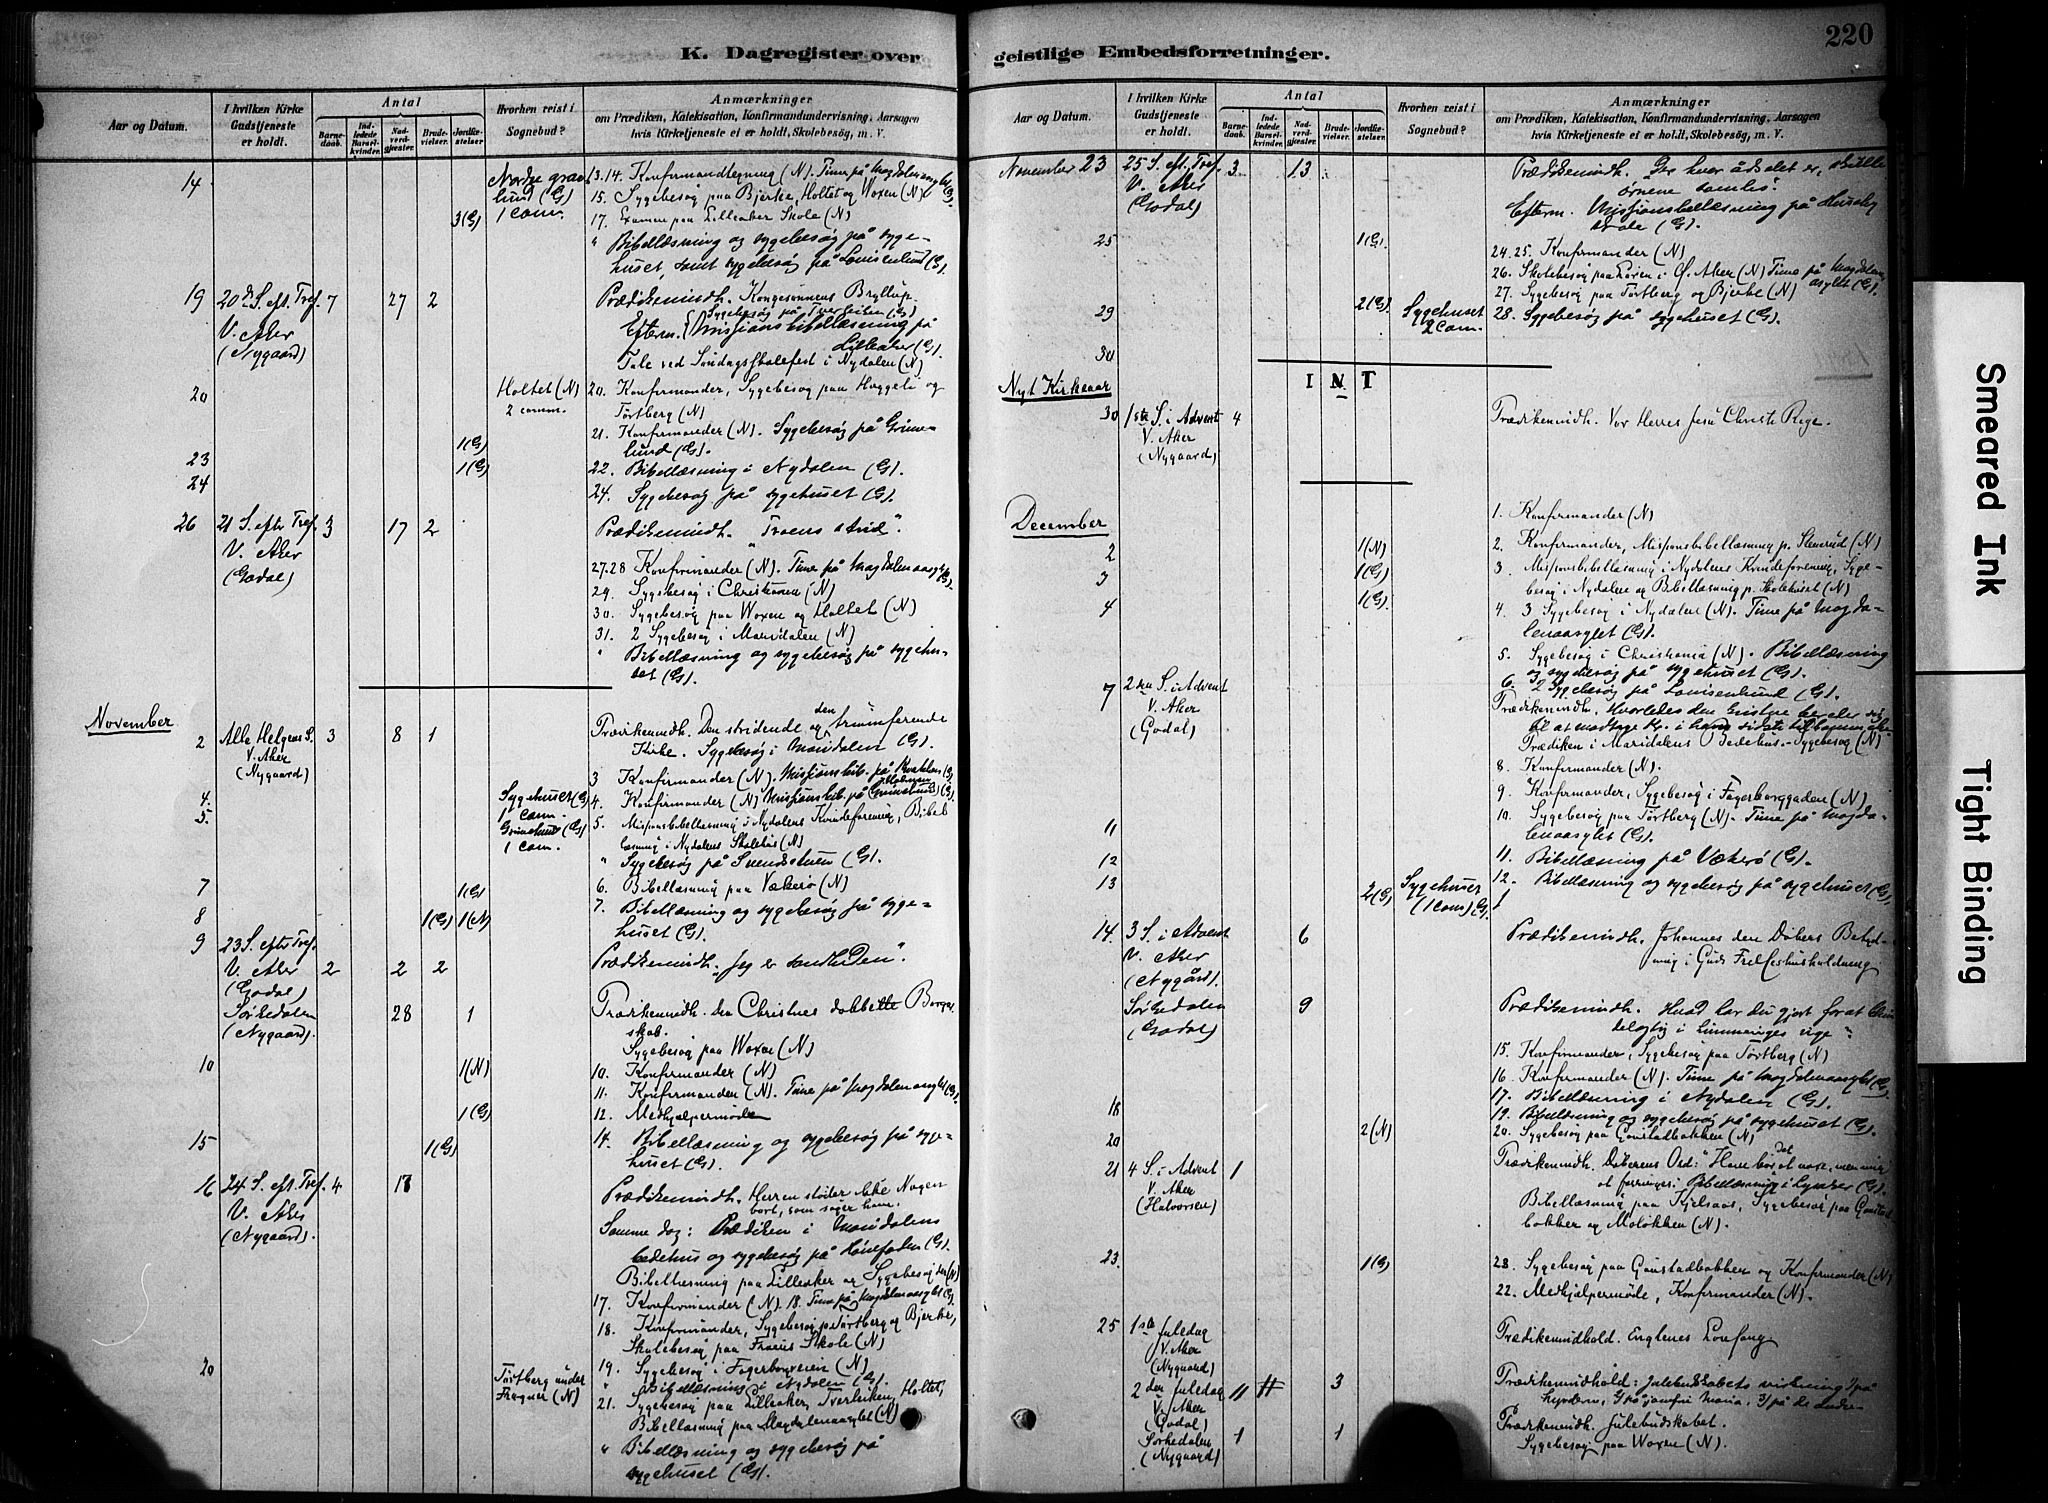 220
K. Dagregister over geistlige Embedsforretninger.
Aar og Datum.
I hvilken Kirke Gudstjeneste er holdt.
Antal
Barnedaab.
Indledede Barselkvinder.
Nadverdgjester.
Brudevielser.
Jordfæstelser
Hvorhen reist i Sognebud?
Anmærkninger
om Prædiken, Katekisation, Konfirmandundervisning, Aarsagen
hvis Kirketjeneste ei er holdt, Skolebesög, m. V.
14
lund (G)
1 com.
3 (G)
15. Sygebesøg paa Bjerke, Holtet og Woxen (N)
17. Examen paa Lilleaker Skole (N)
" Bibellæsning og sygebesøg på syge-
huset, samt sygebesøg på Louisenlund (G).
19 20de S. eft. Tref. 7 27 2
V. Aker
(Nygaard)
Prædikenindh. Kongesønnens Bryllup.
Efterm. Missionsbibellæsning på
Lilleaker (G).
Tale ved Søndagsskolefest i Nydalen (N)
20
Holtet (N)
2 comm.
20. Konfirmander, Sygebesøg paa Heggeli og
Tørtberg (N)
21. Konfirmander (N). Sygebesøg på Grime-
lund (G).
23 1 (G)
24 1 (G)
22. Bibellæsning i Nydalen (G).
24. Sygebesøg på sygehuset (G).
26 21 S. eftr Tref. 3 17 2
V. Aker
(Godal)
Prædikenindh. "Troens strid".
27.28 Konfirmander (N). Time på Magdalenaasylet (G).
29. Sygebesøg i Christiania (N)
30. Sygebesøg paa Woxen og Holtet (N)
31. 2 Sygebesøg i Maridalen (N)
" Bibellæsning og sygebesøg på sygehu-
set (G).
November
2 Alle Helgens S. 3 8 1
V. Aker
(Nygaard)
Prædikenindh. Den stridende og den triumferende
Kirke. Sygebesøg i Maridalen (G).
4.
5.
Sygehuset (G)
1 com.
Grimelund (G)
1 com.
4. Konfirmander (N)
5. Missionsbibellæsning i Nydalens Kvindeforening, Bibel
læsning i Nydalens Skolehus (N)
" Sygebesøg på Svendstuen (G).
7 1 (G)
6. Bibellæsning paa Vækerø (N)
8 1 (G) 1 (N)
7. Bibellæsning og sygebesøg på syge-
huset (G).
9 23 S. eftr Tref.
V. Aker 2 2 2
(Godal)
Prædikenindh. "Jeg er sandheden".
Sørkedalen 28 1
(Nygaard)
Prædikenindh. Den Christnes dobbelte Borger
skab.
Sygebesøg paa Woxen (N)
10 1 (N)
10. Konfirmander (N)
11. Konfirmander (N). Time på Magdalenaasylet (G).
1 (G)
12. Medhjælpermøde
15 1 (G)
14. Bibellæsning og sygebesøg på syge-
huset (G).
16 24 S. eft. Tref. 4 17
V. Aker
(Nygaard).
Prædikenindh. Herren støder ikke Nogen
bort, som søger ham.
Samme dag: Prædiken i Maridalens
bedehus og sygebesøg på Hønefoden (G).
Bibellæsning paa Lilleaker og Sygebesøg der (N)
17. Konfirmander (N). 18. Time på Magdalenaasylet (G).
18. Konfirmander, Sygebesøg p. Tørtberg og Bjerke,
Skolebesøg paa Frøens Skole (N)
20
Tørtberg under
Frogner (N)
19. Sygebesøg i Fagerborgveien (N)
" Bibellæsning i Nydalen (G).
21. Sygebesøg paa Lilleaker, Holtet,
Bibellæsning paa Magdalenaasylet (N)
" Bibellæsning og sygebesøg på
sygehuset (G).
Aar og Datum.
I hvilken Kirke Gudstjeneste er holdt.
Antal
Barnedaab.
Indledede Barselkvinder.
Nadverdgjester.
Brudevielser.
Jordfæstelser
Hvorhen reist i Sognebud?
Anmærkninger
om Prædiken, Katekisation, Konfirmandundervisning, Aarsagen
hvis Kirketjeneste ei er holdt, Skolebesög, m. V.
November 23 25 S. eft. Tref. 3 13
V. Aker
(Godal)
Prædikenindh. Der hvor ådselet er, skulle
ørnene samles.
Efterm. Missionsbibellæsning på Huseby
skole (G).
25 1 (G).
24.25. Konfirmander (N)
27. Sygebesøg paa Tørtberg og Bjerke (N)
29 2 (G).
Sygehuset
2 com.
28. Sygebesøg på sygehuset (G).
30
INT
Nyt Kirkeaar
30 1ste S. i Advent 4
V. Aker
(Nygaard)
Prædikenindh. Vor Herres Jesu Christi Rige.
December
1. Konfirmander (N)
2 1 (N)
2. Konfirmander, Missionsbibellæsning p. Stenerud (N)
3 1 (G)
3. Missionsbibellæsning i Nydalens Kvindeforening, Syge-
besøg i Nydalen og Bibellæsning p. Skolehuset (N)
4 1 (G).
4. 3 Sygebesøg i Nydalen (N). Time på Magda-
lenaasylet (G).
5. Sygebesøg i Christiania (N). Bibellæsning
og sygebesøg på sygehuset (G).
6. 2 Sygebesøg på Louisenlund (G).
7 2den S. i Advent
V. Aker
(Godal)
Prædiken i Maridalens Bedehus. Sygebesøg (N)
8. Konfirmander (N).
9. Konfirmander, Sygebesøg i Fagerborggaden (N)
10. Sygebesøg paa Tørtberg (N). Time på Magda-
lenaasylet (G).
11
12
11. Bibellæsning på Vækerø (G).
13 2 (G)
Sygehuset
(1 com) (G)
12. Bibellæsning og sygebesøg på sygehuset (G).
14. 3 S. i Advent 6
V. Aker
(Nygård).
Prædikenindh. Johannes den Døbers Betyd-
ning i Guds Frelseshusholdning
Sørkedalen 9
(Godal)
Prædikenindh. Hvad har du gjort for at blive
delagtig i himmeriges rige?
15. Konfirmander, Sygebesøg paa Tørtberg (N)
16. Konfirmander (N). Time på Magdalenaasylet (G).
17. Bibellæsning i Nydalen (G).
18
19. Bibellæsning og sygebesøg på sygehuset (G).
20 2 (N)
20. Sygebesøg paa Gaustadbakken (N)
21 4 S. i Advent 1
V. Aker
(Halvorsen)
Bibellæsning paa Kjelsaas, Sygebesøg paa Gaustad
bakken og Moløkken (N).
23. 1 (G)
23. Sygebesøg paa Gaustadbakken og Konfirmander (N)
22. Medhjælpermøde, Konfirmander (N).
25 1ste Juledag
V. Aker
(Nygaard)
Prædikenindhold. Englenes Lovsang
2den Juledag 11 3
V. Aker
(Godal)
Prædikenindhold: Julebudskabets virkning
Sørkedalen 1 1
(Nygaard)
Prædikenindh. Julebudskabet.
Sygebesøg paa Woxen (N).
Smeared Ink
Tight Binding